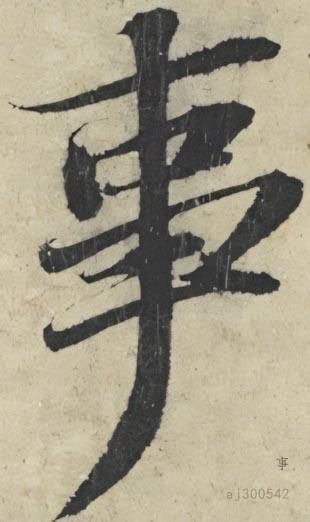 事
事
aj300542